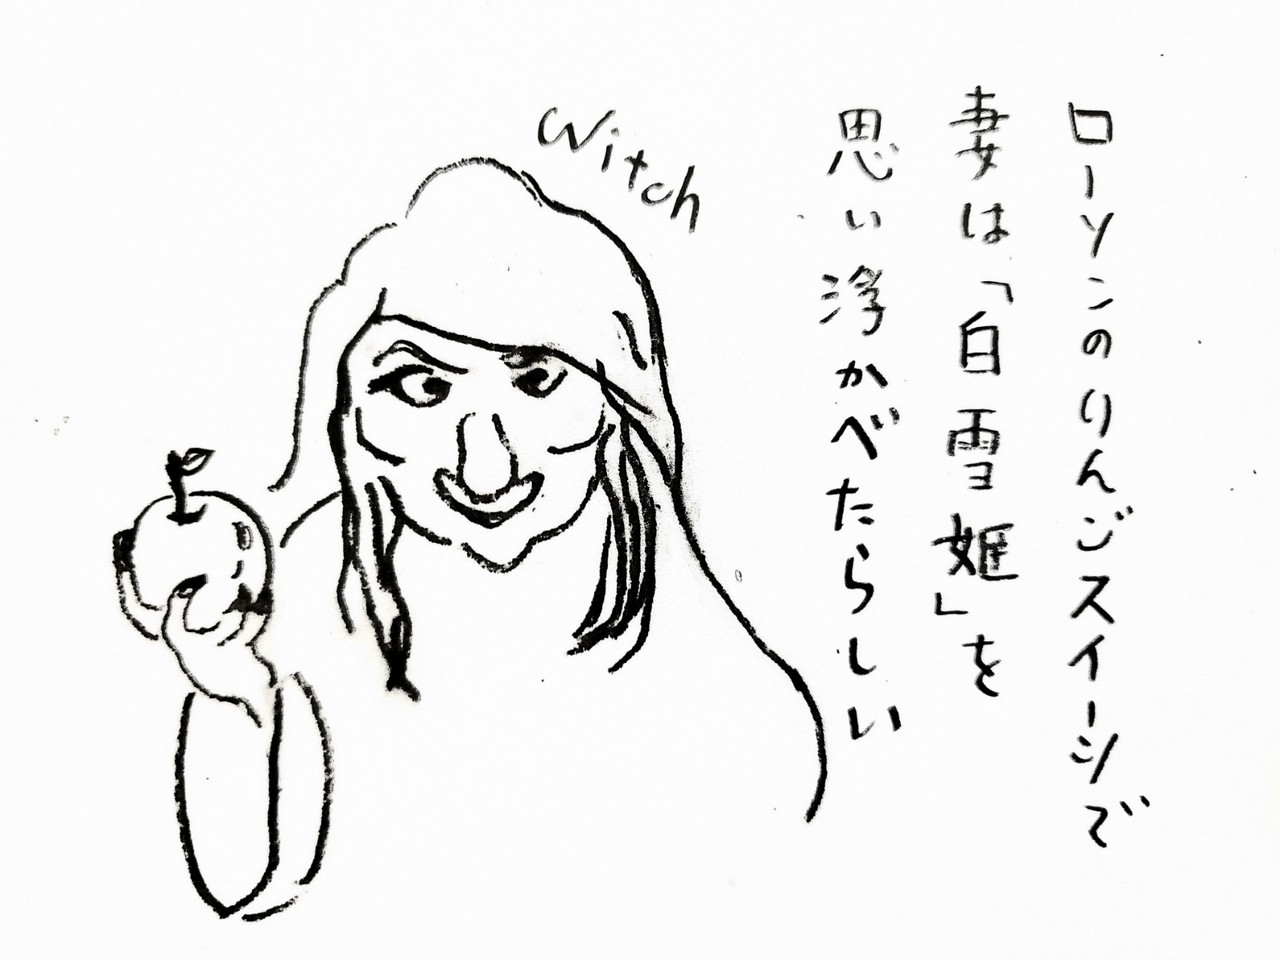 Witch
ローソンのりんごスイーツで
妻は「白雪姫」を
思い浮かべたらしい